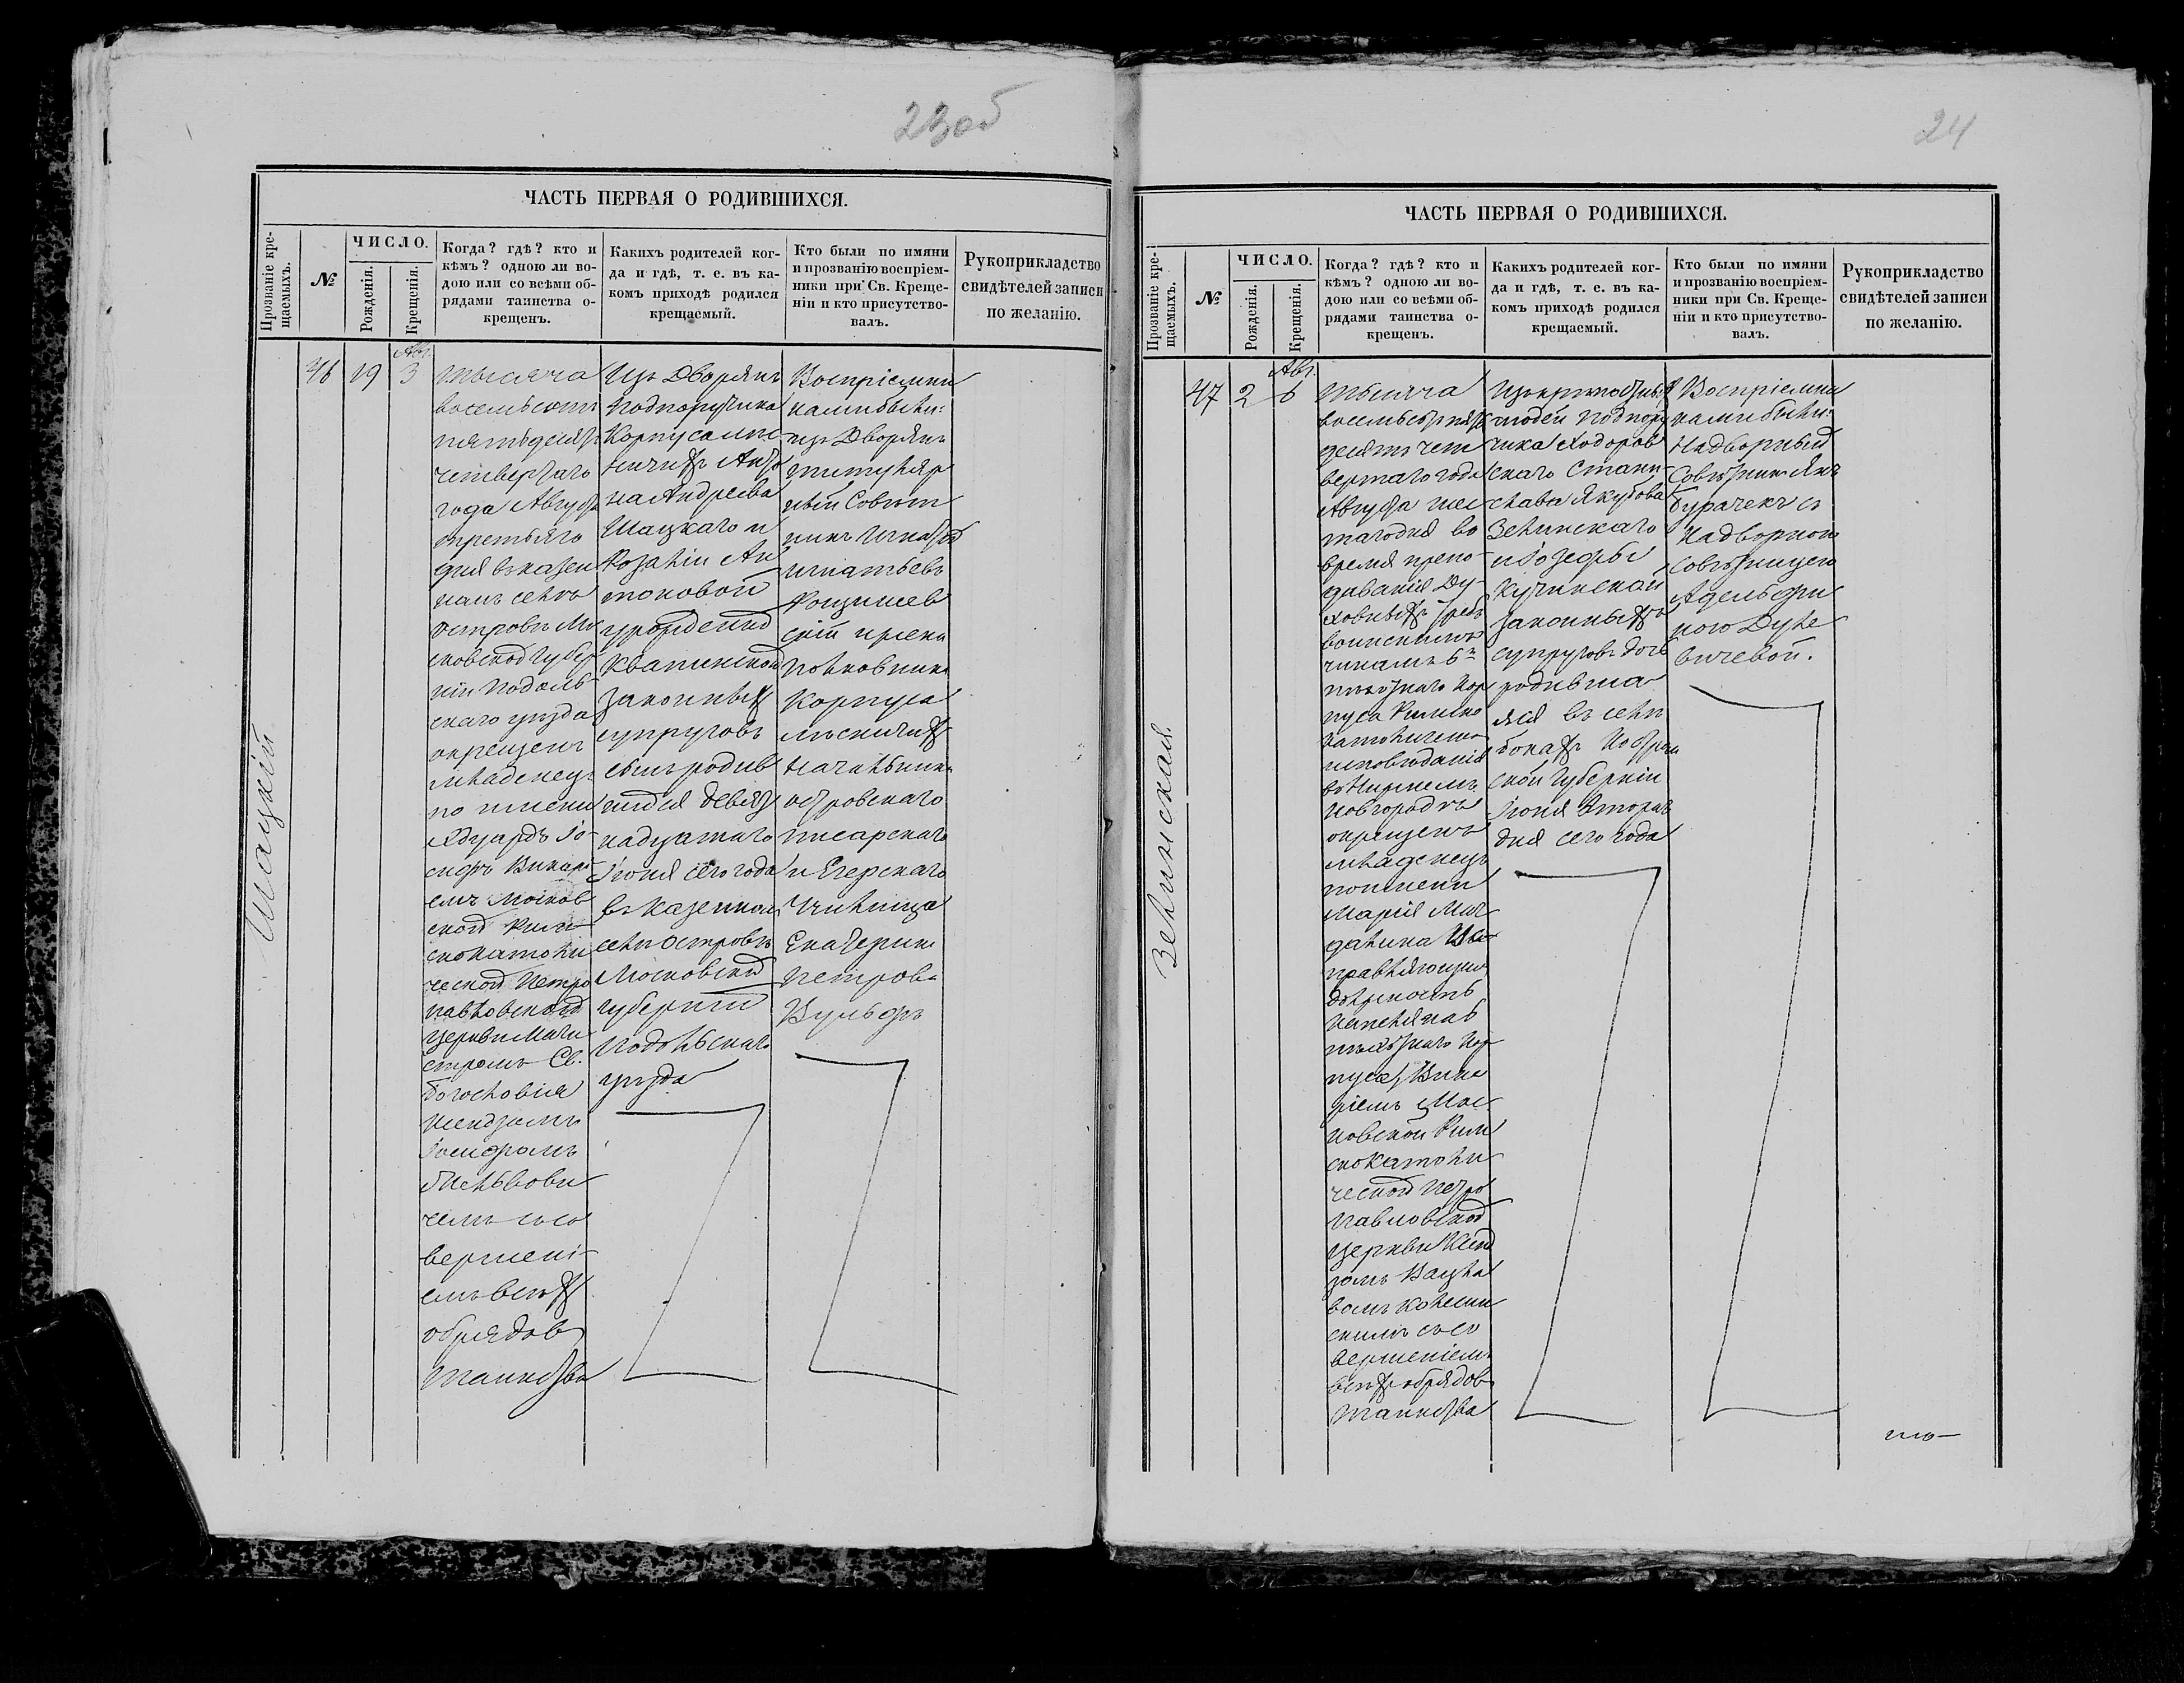 23об
ЧАСТЬ ПЕРВАЯ О РОДИВШИХСЯ.
Прозваніе кре-
щаемыхъ.
№
ЧИСЛО.
Рожденія.
Крещенія.
Когда? гдѣ? кто и
кѣмъ? одною ли во-
дою или со всѣми об-
рядами таинства о-
крещенъ.
Какихъ родителей ког-
да и гдѣ, т. е. въ ка-
комъ приходѣ родился
крещаемый.
Кто были по имяни
и прозванію воспріем-
ники при Св. Креще-
ніи и кто присутство-
валъ.
Рукоприкладство
свидѣтелей записи
по желанію.
Шацкій
46
19
Авг.
3
тысяча
восемьсотъ
пятьдесятъ
четвертаго
года Августа
третьяго
дня въ казен
номъ селѣ
Островѣ Мо
сковской Губер
ніи Подоль-
скаго уѣзда
окрещенъ
младенецъ
по имени
Эдуардъ Іо-
сифъ Викарі-
емъ Москов
ской Рим-
скокатоли
ческой Петро
павловской
Церкви Маги
стромъ Св.
Богословія
Ксендзомъ
Іосифомъ
чемъ съ со
вершені-
емъ всѣхъ
обрядовъ
таинства
Изъ Дворянъ
Подпоручика
Корпуса лѣс-
ничихъ Анто
на Андреева
Шацкаго и
Розаліи Ан
тоновой
урожденной
Квапинской
законныхъ
супруговъ
сынъ родив
шійся девят
надцатаго
Іюня сего года
въ Казенномъ
селѣ Островѣ
Московской
губерніи
Подольскаго
уѣзда
Воспріемни
ками были:
изъ Дворянъ
титуляр
ный Совѣт
никъ Игнатій
Игнатьевъ
скій и жена
Полковника
Корпуса
лѣсничихъ
Начальника
Островскаго
писарскаго
и Егерскаго
Училища
Екатерина
Петрова
Вульфъ
24
ЧАСТЬ ПЕРВАЯ О РОДИВШИХСЯ.
Прозваніе кре-
щаемыхъ.
№
ЧИСЛО.
Рожденія.
Крещенія.
Когда? гдѣ? кто и
кѣмъ? одною ли во-
дою или со всѣми об-
рядами таинства о-
крещенъ.
Какихъ родителей ког-
да и гдѣ, т. е. въ ка-
комъ приходѣ родился
крещаемый.
Кто были по имяни
и прозванію воспріем-
ники при Св. Креще-
ніи и кто присутство-
валъ.
Рукоприкладство
свидѣтелей записи
по желанію.
Зелинская
47
2
Авг.
6
тысяча
восемьсотъ пять
десятъ чет
вертаго года
Августа шес
таго дня во
время препо-
даванія Ду-
ховныхъ требъ
воинскимъ
чинамъ 6го
пѣхотнаго Кор
пуса Римско
католическаго
исповѣданія
въ Нижнемъ
Новгородѣ
окрещенъ
младенецъ
по имени
Марія Маг
далина Ис-
правляющимъ
должность
Капеллана 6
пѣхотнаго Кор-
пуса, Вика
ріемъ Мос-
ковской Рим
скокатоли
ческой Петро
павловской
Церкви Ксенд
зомъ Вацла
вомъ
скимъ съ со
вершеніемъ
всѣхъ обрядовъ
таинства
Изъ крѣпостныхъ
людей Подпору
чика Ходоров
скаго Стани-
слава Якубова
Зелинскаго
и Іозефы
Кучинской
законныхъ
супруговъ дочь
родивша-
яся въ селѣ
Бокахъ Костром
ской Губерніи
Іюня втораго
дня сего года
Воспріемни
ками были:
Надворный
Совѣтникъ Янъ
Бурачекъ съ
Надворною
Совѣтницею
Адельфи
ною Духе
вичевой.